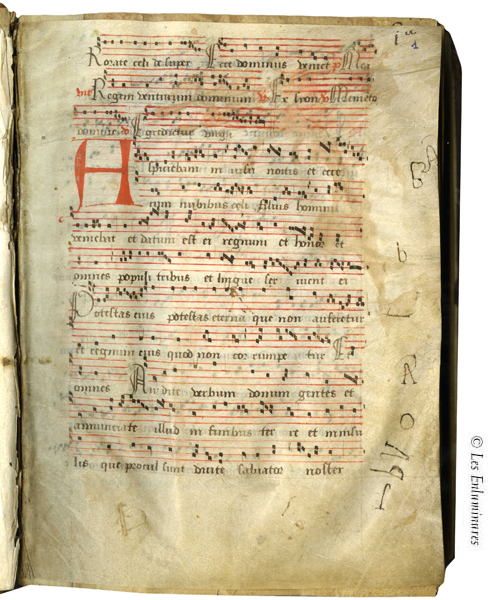 Rorate celi desuper Ecce dominus veniet
Regem venturum dominum Ex Syon
Egredietur virga
Aspiciebam in visu noctis et ecce
cum nubibus celi filius homini
veniebat et datum est ei regnum et honor et
omnes populi tribus et lingue ser vient ei
Potestas eius potestas eterna que non auferetur
et regnum eius quod non cor rumpe tur Et
omnes Audite verbum domini gentes et
annunciate illud in finibus ter re et in insu
lis que procul sunt dicite salvator noster
© Les Enluminures